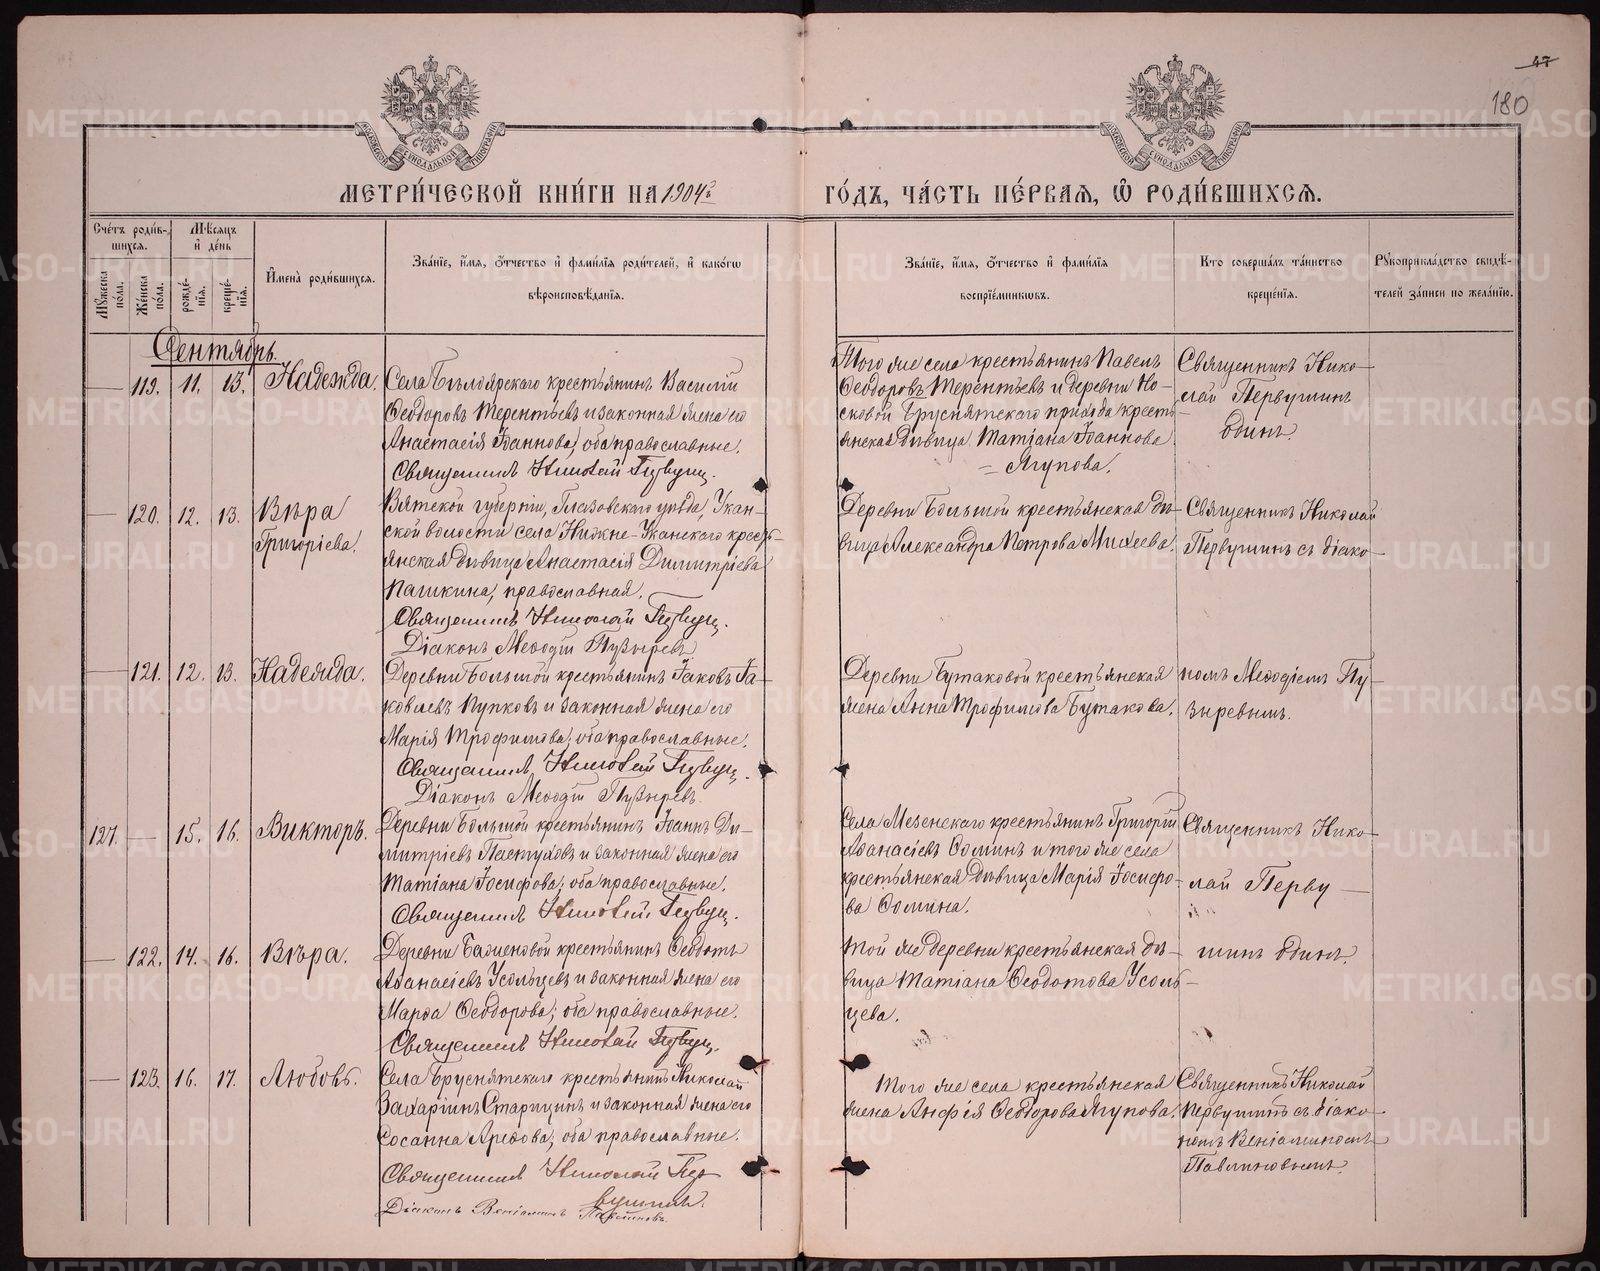 47
180
МЕТРИ́ЧЕСКОЙ КНИ́ГИ НА 1904й
ГО́ДЪ, ЧА́СТЬ ПЕ́РВАЯ, Ѽ РОДИ́ВШИХСѦ.
Сче́тъ роди́в-
шихсѧ.
Мѣ́сѧцъ
и҆ де́нь
Мꙋ́жеска по́ла.
Же́нска по́ла.
рожде́-
нїѧ.
креще́-
нїѧ.
И҆мена̀ роди́вшихсѧ.
Зва́нїе, и҆́мѧ, ѻ҆́тчество и҆ фами́лїѧ роди́телей, и҆ како́гѡ
вѣроисповѣ́данїѧ.
Зва́нїе, и҆́мѧ, ѻ҆́тчество и҆ фами́лїѧ
воспрїе́мникѡвъ.
Кто̀ соверша́лъ та́инство
креще́нїѧ.
Рꙋкоприкла́дство свидѣ́-
телей за́писи по жела́нїю.
Сентябрь.
119. 11. 13. Надежда.
Села Бѣлоярскаго крестьянинъ Василій
Ѳеодоровъ Терентьевъ и законная жена его
Анастасія Іоаннова, оба православные.
Священникъ Николай Первуш.
Того же села крестьянинъ Павелъ
Ѳеодоровъ Терентьевъ и деревни Но-
сковой Бруснятскаго прихода кресть-
янская дѣвица Татіана Іоаннова
= Ягупова.
Священникъ Нико-
лай Первушинъ
одинъ.
120. 12. 13. Вѣра
Григоріева.
Вятской губерніи, Глазовскаго уѣзда, Укан-
ской волости села Нижне-Уканскаго кресть-
янская дѣвица Анастасія Димитріева
Пашкина, православная.
Священникъ Николай Первуш.
Діаконъ Меѳодій Пузыревъ
Деревни Большой крестьянская дѣ-
вица Александра Петрова Михеева.
Священникъ Николай
Первушинъ съ діако-
121. 12. 13. Надежда.
Деревни Большой крестьянинъ Іаковъ Іа-
ковлевъ Пупковъ и законная жена его
Марія Трофимова, оба православные.
Священникъ Николай Первуш.
Діаконъ Меѳодій Пузыревъ.
Деревни Бутаковой крестьянская
жена Анна Трофимова Бутакова.
номъ Меѳодіемъ Пу-
зыревымъ.
127. — 15. 16. Викторъ.
Деревни Большой крестьянинъ Іоаннъ Ди-
митріевъ Пастуховъ и законная жена его
Татіана Іосифова, оба православные.
Священникъ Николай Первуш.
Села Мезенскаго крестьянинъ Григорій
Аѳанасіевъ Соминъ и того же села
крестьянская дѣвица Марія Іосифо-
ва Сомина.
Священникъ Нико-
лай Перву —
122. 14. 16. Вѣра.
Деревни Баженовой крестьянинъ Ѳеодотъ
Аѳанасіевъ Усольцевъ и законная жена его
Марѳа Ѳеодорова, оба православные.
Священникъ Николай Первуш.
Той же деревни крестьянская дѣ-
вица Татіана Ѳеодотова Усоль-
цева.
шинъ одинъ.
123. 16. 17. Любовь.
Села Бруснятскаго крестьянинъ Николай
Захаріинъ Старицинъ и законная жена его
Сосанна Ареѳова, оба православные.
Священникъ Николай Пер-
вушинъ.
Діаконъ Веніаминъ
Того же села крестьянская
жена Анфія Ѳеодорова Ягупова.
Священникъ Николай
Первушинъ съ діако-
номъ Веніаминомъ